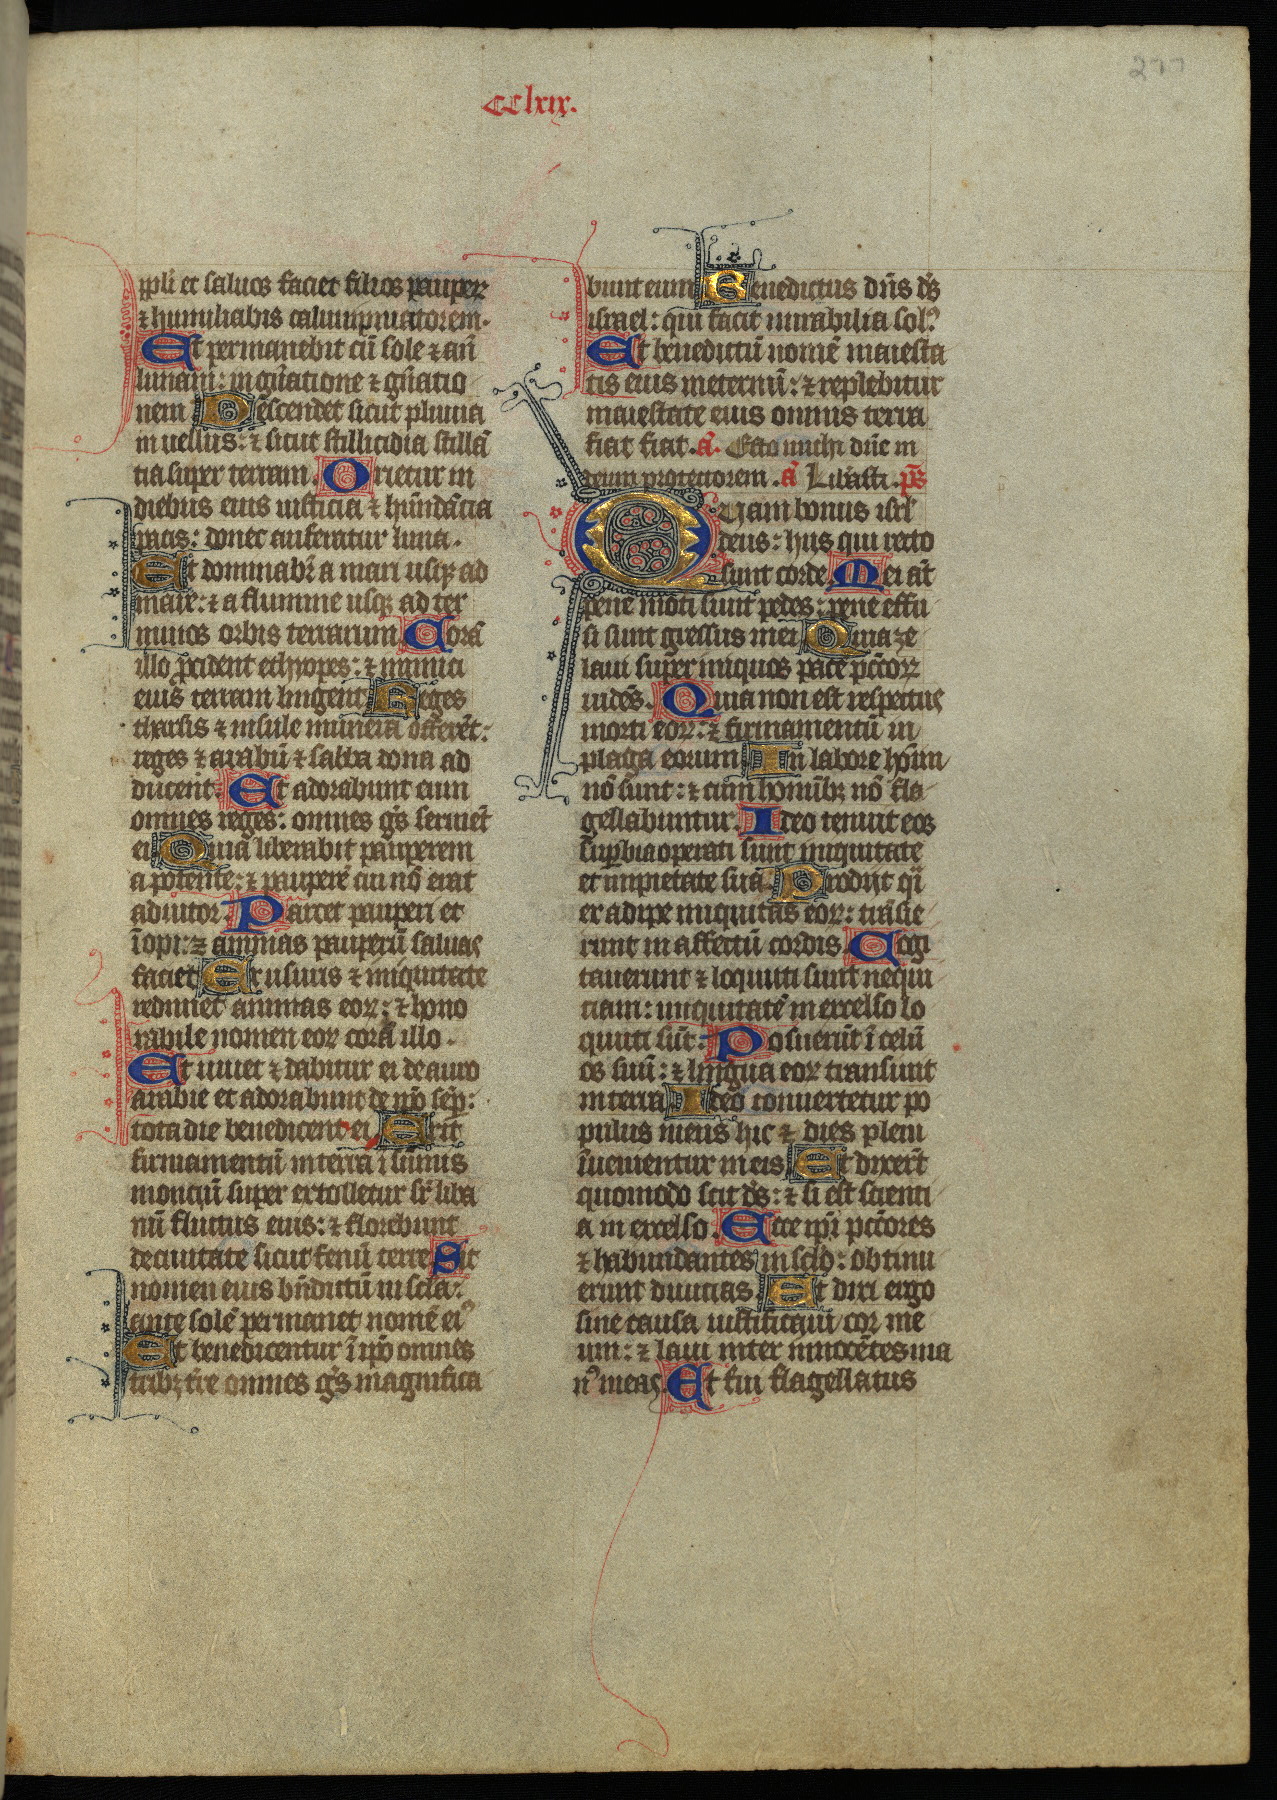 277
CClxix.
ppli et saluos faciet filios pauperꝝ
⁊ humiliabis calumpniatorem.
Et permanebit cū sole ⁊ an̄
lunam: in gn̄atione ⁊ gn̄atio
nem Descendet sicut pluuia
in uellus: ⁊ sicut stillicidia stillā
tia super terram. Orietur in
diebus eius iusticia ⁊ hūndācia
pacis: donec auferatur luna.
Et dominabr̄ a mari usqꝫ ad
mare: ⁊ a flumine usqꝫ ad ter
minos orbis terrarum Corā
illo ꝓcident ethyopes: ⁊ inimici
eius terram lingent Reges
tharsis ⁊ insule munera offerēt:
reges ⁊ arabū ⁊ sabba dona ad
ducent. Et adorabunt eum
omnes reges: omnes gs̄ seruiēt
ei Quia liberabit pauperem
a potente: ⁊ pauperē cui nō erat
adiutor. Parcet pauperi et
īopi: ⁊ animas pauperū saluas
faciet Ex usuris ⁊ iniquitate
redimet animas eoꝝ: ⁊ hono
rabile nomen eoꝝ corā illo.
Et uiuet ⁊ dabitur ei de auro
arabie et adorabunt de ip̄o semp̄:
tota die benedicent ei Erit
firmamentū in terra ī sūmis
monciū super extolletur sr̄ liba
nū fructus eius: ⁊ florebunt
de ciuitate sicut fenū terre Sit
nomen eius bn̄dictū in scl̄a:
ante solē permanet nomē eiꝰ
Et benedicentur ī ip̄o omnes
tribꝫ tr̄e omnes gs̄ magnifica
bunt eum Benedictus dn̄s ds̄
israel: qui facit mirabilia solꝰ
Et benedictū nomē maiesta
tis eius in eternū: ⁊ replebitur
maiestate eius omnis terra
fiat fiat. a̅. Esto michi dn̄e in
deum protectorem. a̅ Libāsti. ps̄
Quam bonus isrl̄
deus: hys qui recto
sunt corde Mei aūt
pene moti sunt pedes: pene effu
si sunt gressus mei Quia ze
laui super iniquos pacē pc̄toꝝ
uidēs. Quia non est respectus
morti eoꝝ: ⁊ firmamentū in
plaga eorum In labore hoīm
nō sunt: ⁊ cum homībꝫ nō fla
gellabuntur. Ideo tenuit eos
suꝑbia operati sunt iniquitate
et impietate suā. Prodijt qi̅
ex adipe iniquitas eoꝝ: transie
runt in affectū cordis Cogi
tauerunt ⁊ locuti sunt nequi
tiam: iniquitatē in excelso lo
quuti sūt: Posuerūt ī celū
os suū: ⁊ lingua eoꝝ transiuit
in terra Ideo conuertetur po
pulus meus hic ⁊ dies pleni
īuenientur in eis Et dixerūt
quomodo scit ds̄: ⁊ si est scienti
a in excelso. Ecce ip̄i pc̄tores
⁊ habundantes in scl̄o: obtinu
erunt diuicias Et dixi ergo
sine causa iustificaui cor me
um: ⁊ laui inter innocētes ma
nꝰ meas Et fui flagellatus